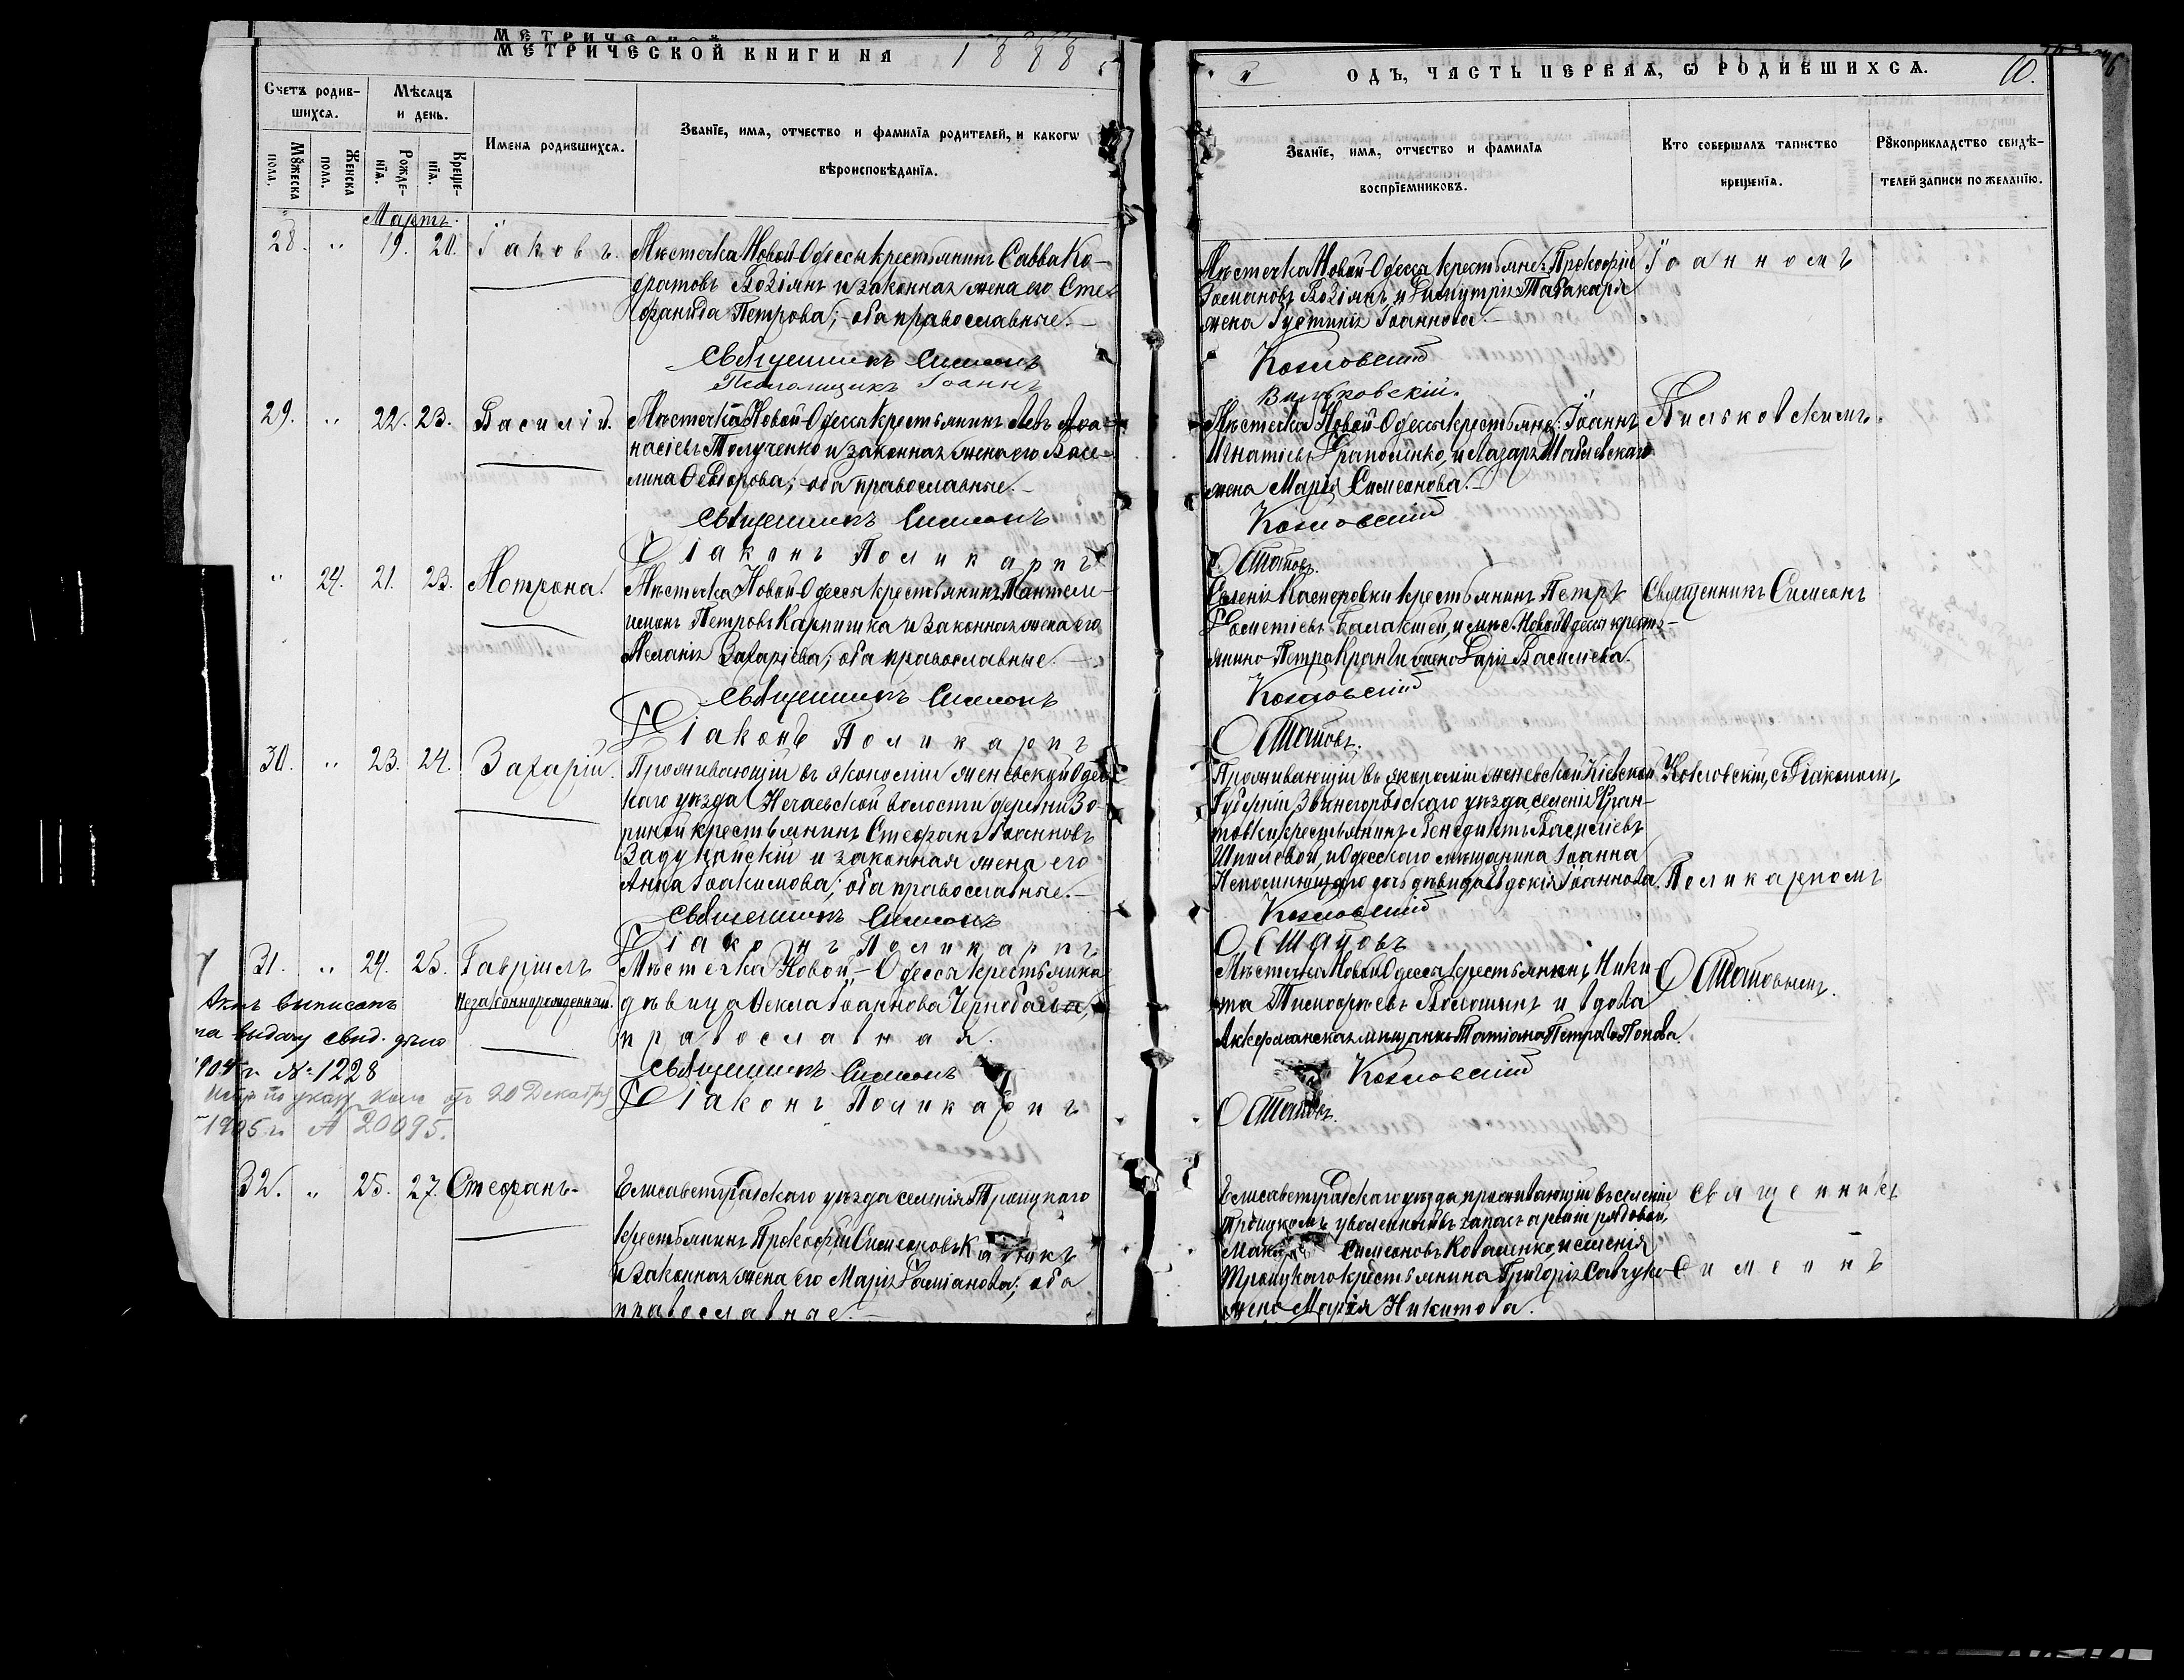 МЕТРИЧЕСКОЙ
МЕТРИЧЕСКОЙ КНИГИ НА 1888
ОДЪ, ЧАСТЬ ПЕРВАЯ, Ѡ РОДИВШИХСЯ. 10.
Счетъ родив-
шихся.
Мѣсяцъ
и день.
Мꙋжеска
пола.
Женска
пола.
Рожде-
нїя.
Креще-
нїя.
Имена родившихся.
Званїе, имя, отчество и фамилїя родителей, и какогѡ
вѣроисповѣданїя.
Званїе, имя, отчество и фамилїя
воспрїемниковъ.
Кто совершалъ таинство
крещенїя.
Рꙋкоприкладство свидѣ-
телей записи по желанїю.
Мартъ.
28. " 19. 20. Іаковъ.
Мѣстечка Новой-Одессы крестьянинъ Савва Ко-
дратовъ Бозіянъ и законная жена его Сте-
фанида Петрова; оба православные.
Священникъ Симеонъ
Псаломщикъ Іоаннъ
Мѣстечка Новой-Одессы крестьяне: Прокофій
Бозіянъ, и Димитрія Табакаря
жена Іустинія Іоаннова.
Козловскій
Вильковскій.
Іоанномъ
29. " 22. 23. Василій.
Мѣстечка Новой-Одессы крестьянинъ Левъ Аѳа-
насіевъ Толученко и законная жена его Васи-
лина Ѳеодорова; оба православные.
Священникъ Симеонъ
Діаконъ Поликарпъ
Мѣстечка Новой-Одессы крестьяне: Іоаннъ
Игнатіевъ и Лазаря
жена Марія Симеонова.
Козловскій
Остаповъ.
" 24. 21. 23. Мотрона.
Мѣстечка Новой-Одессы крестьянинъ Пантеле-
имонъ Петровъ Карпишка и законная жена его
Меланія Захаріева; оба православные.
Священникъ Симеонъ
Діаконъ Поликарпъ
Селенія Касперовки крестьянинъ Петръ
Балакшей, и мѣс. Новой Одессы кресть-
янина Петра жена Дарія Василіева.
Козловскій
Остаповъ.
Священникъ Симеонъ
30. " 23. 24. Захарій.
Проживающій въ экономіи Одес-
каго уѣзда Нечаевской волости деревни Зо-
риной крестьянинъ Стефанъ Іоанновъ
Задунайскій и законная жена его
Анна Іоакимова; оба православные.
Священникъ Симеонъ
Діаконъ Поликарпъ
Проживающій въ экономіи Кіевской
Губерніи Звенегородскаго уѣзда, селенія
крестьянинъ Венедиктъ Василіевъ
и Одесскаго мѣщанина Іоанна
Непомнющаго дочь дѣвица Евдокія Іоаннова.
Козловскій
Остаповъ
Козловскій, съ Діакономъ
Поликарпомъ
31. " 24. 25. Гавріилъ
незаконнорожденный.
Мѣстечка Новой-Одессы крестьянка
дѣвица Ѳекла Іоаннова
православная.
Священникъ Симеонъ
Діаконъ Поликарпъ
Мѣстечка Новой Одессы крестьянинъ Ники-
та Тимофеевъ Волошинъ и вдова
Аккерманская мѣщанка Татіана Петрова Попова
Козловскій
Остаповъ.
Остаповымъ.
Актъ выписанъ
на выдачу свид. дѣло
1904 г. № 1228
20 Декабря
1905 г. № 20095.
32. " 25. 27. Стефанъ.
Елисаветградскаго уѣзда селенія Троицкаго
крестьянинъ Прокофій Симеоновъ
и законная жена его Марія Даміанова; оба
православные.
Елисаветградскаго уѣзда, проживающій въ селеніи
Троицкомъ уволенный въ запасъ арміи рядовой,
Симеоновъ Коваленко, и селенія
Троицкаго крестьянина Григорія Савчука
жена Марія Никитова.
Священникъ
Симеонъ